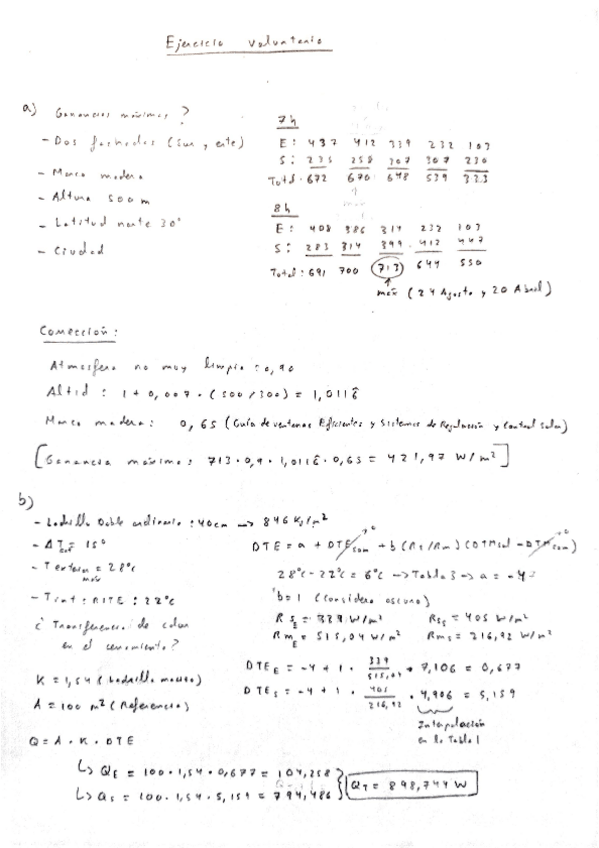 Ejercicio voluntario
a) Ganancias máximas?
- Dos fachadas (Sur y este)
- Marco madera
- Altura 500 m
- Latitud norte 30°
- Ciudad
7h
E: 437 412 339 232 107
S: 235 258 307 307 230
Total: 672 670 648 539 333
8h
E: 408 386 314 232 107
S: 283 314 399 412 447
Total: 691 700 713 644 550
máx (24 Agosto y 20 Abril)
Corrección:
Atmosfera no muy limpia: 0,90
Altid: 1 + 0,007 · (500/300) = 1,0116
Marco madera: 0,65 (Guía de ventanas Eficientes y Sistemas de Regulación y Control Solar)
[Ganancia máxima: 713 · 0,9 · 1,0116 · 0,65 = 421,97 W/m²]
b)
- Ladrillo Doble ordinario: 40cm → 846 Kg/m²
- ΔText = 15°
- T exterior max = 28°C
- Tint: RITE: 22°C
¿Transferencia de calor
en el cerramiento?
K = 1,54 (ladrillo macizo)
A = 100 m² (Referencia)
Q = A · K · DTE
DTE = a + DTEcom + b (Rs/Rm) (DTMsol - DTMcom)
28°C - 22°C = 6°C → Tabla 3 → a = -4
b = 1 (Considero oscuro)
RsE = 339 W/m² RsS = 405 W/m²
RmE = 515,04 W/m² RmS = 216,92 W/m²
DTEE = -4 + 1 · 339/515,04 · 7,106 = 0,677
DTES = -4 + 1 · 405/216,92 · 4,906 = 5,159
Interpolación
en la Tabla 1
↳ QE = 100 · 1,54 · 0,677 = 104,258
↳ QS = 100 · 1,54 · 5,159 = 794,486
QT = 898,744 W